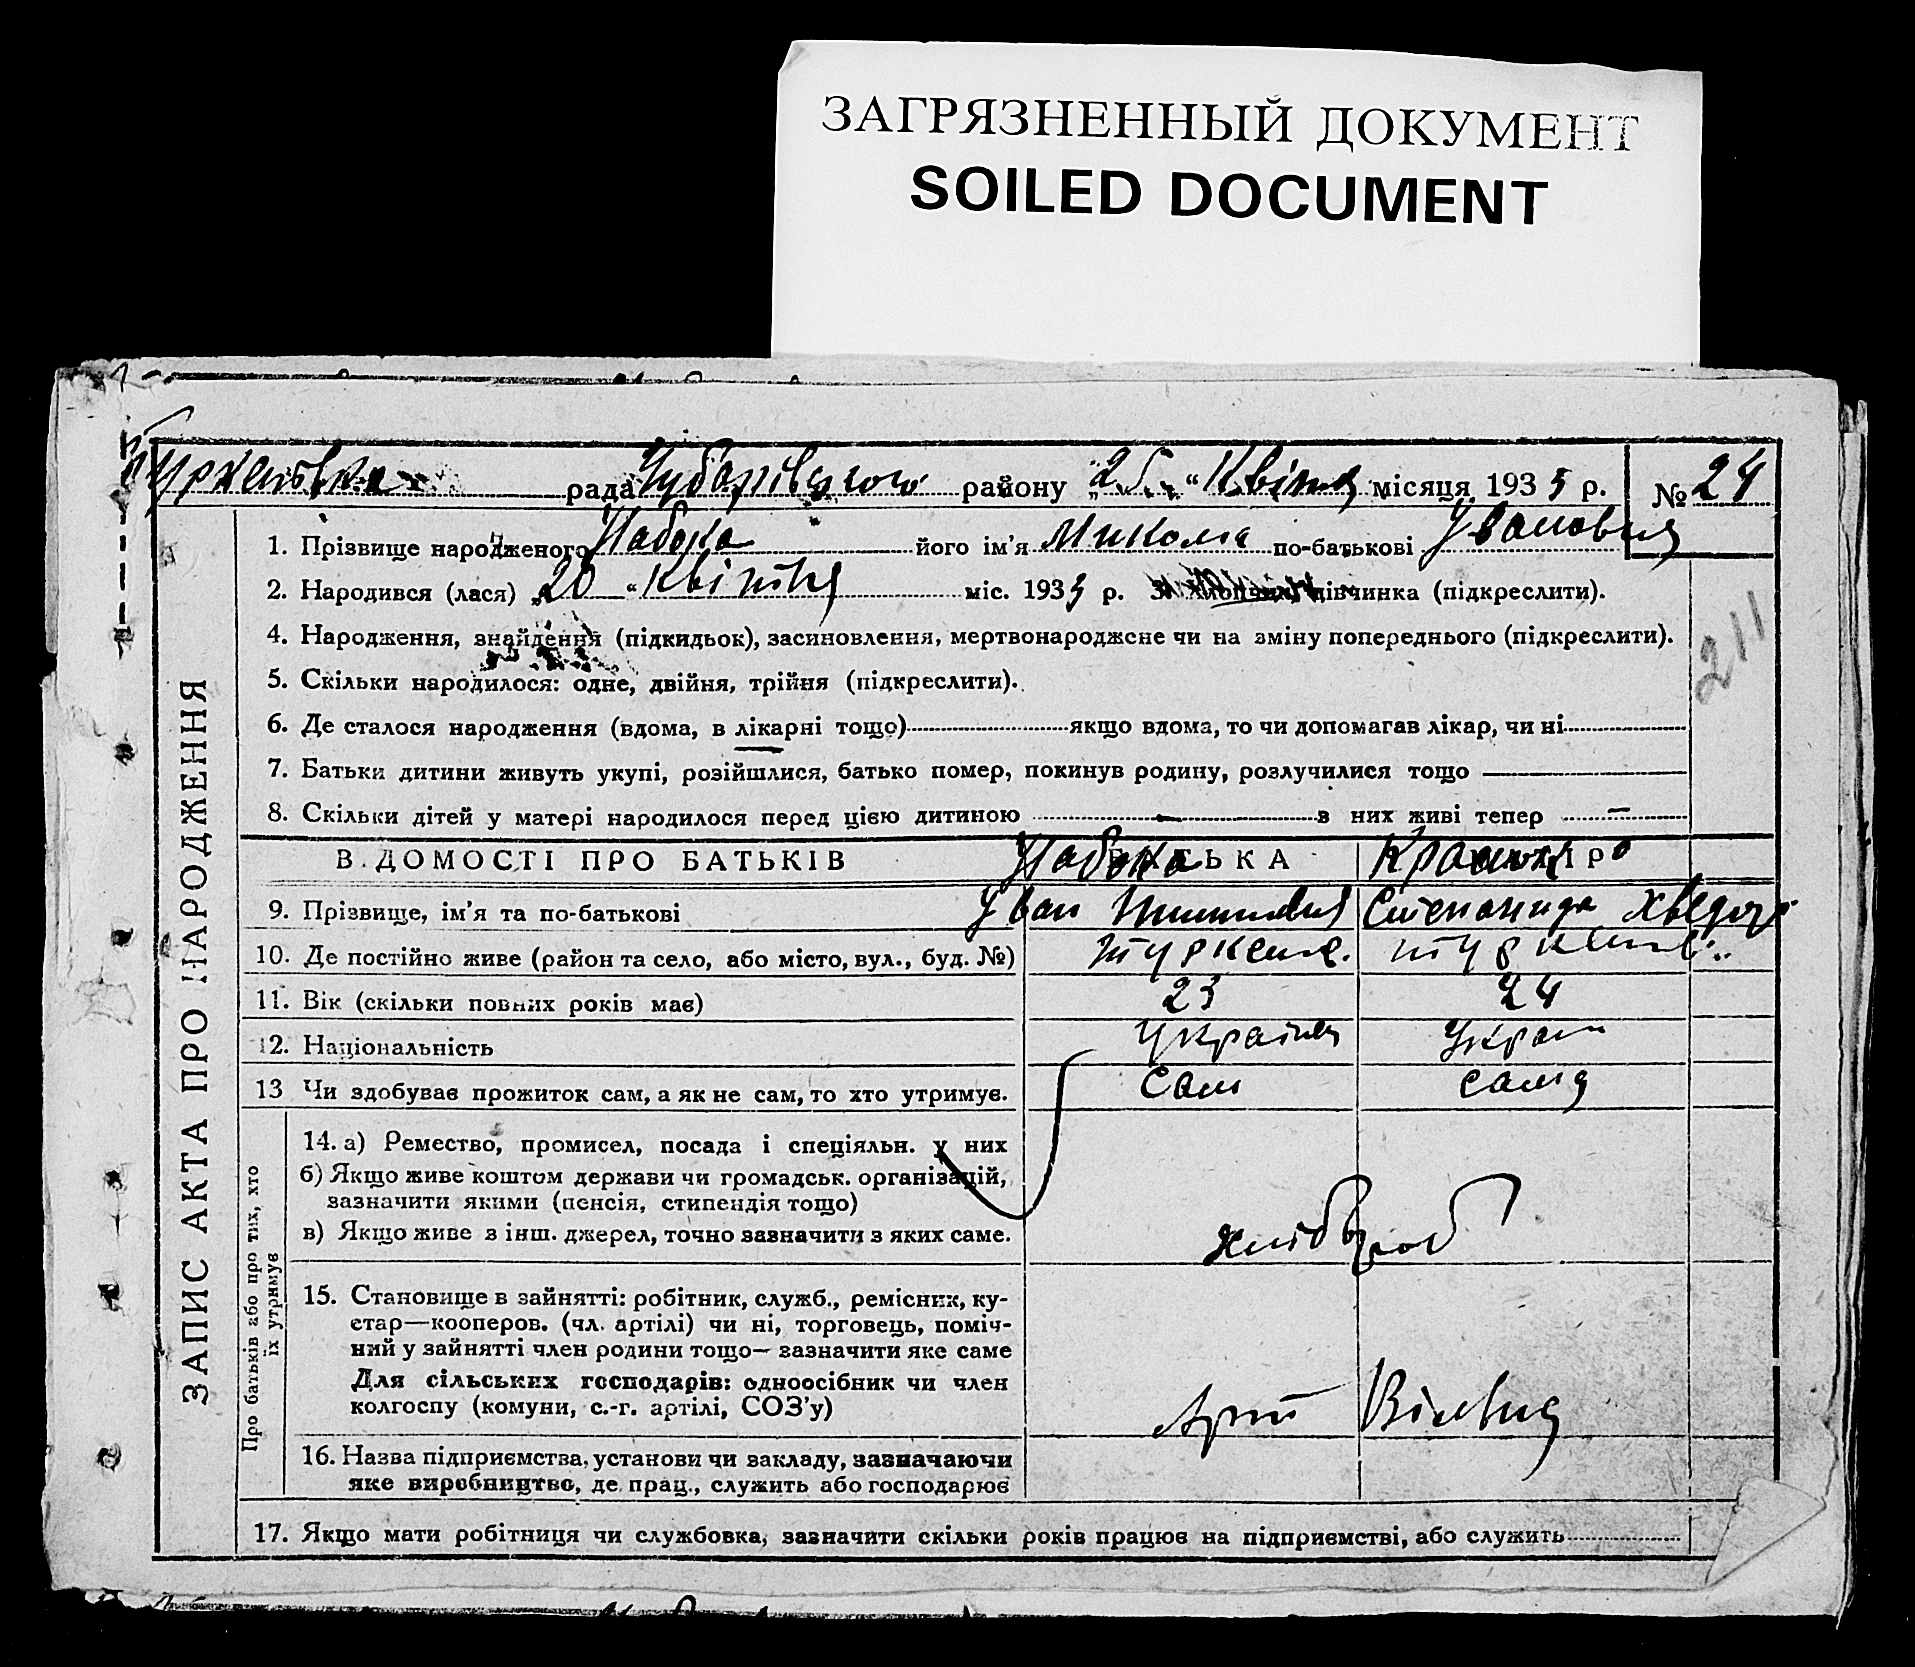 ЗАГРЯЗНЕННЫЙ ДОКУМЕНТ
SOILED DOCUMENT
рада Чубарівського району „25“ Квітня місяця 1933 р. № 24
1. Прізвище народженого Набока його ім'я Микола по-батькові Іванович
2. Народився (лася) „20“ Квітня міс. 1933 р. 3. дівчинка (підкреслити).
4. Народження, знайдення (підкидьок), засиновлення, мертвонароджене чи на зміну попереднього (підкреслити).
211
5. Скільки народилося: одне, двійня, трійня (підкреслити).
6. Де сталося народження (вдома, в лікарні тощо) якщо вдома, то чи допомагав лікар, чи ні
7. Батьки дитини живуть укупі, розійшлися, батько помер, покинув родину, розлучилися тощо —
8. Скільки дітей у матері народилося перед цією дитиною — з них живі тепер —
В.ДОМОСТІ ПРО БАТЬКІВ Набока
9. Прізвище, ім'я та по-батькові Іван Степанида
10. Де постійно живе (район та село, або місто, вул., буд. №) Туркен. Туркен.
11. Вік (скільки повних років має) 23 24
12. Національність Україн Украї
13 Чи здобуває прожиток сам, а як не сам, то хто утримує. Сам сама
ЗАПИС АКТА ПРО НАРОДЖЕННЯ
Про батьків або про тих, хто
їх утримує
14. а) Ремество, промисел, посада і спеціяльн. у них
б) Якщо живе коштом держави чи громадськ. організацій,
зазначити якими (пенсія, стипендія тощо)
в) Якщо живе з інш. джерел, точно зазначити з яких саме. хлібороб
15. Становище в зайнятті: робітник, служб., ремісник, ку-
стар—кооперов. (чл. артілі) чи ні, торговець, поміч-
ний у зайнятті член родини тощо— зазначити яке саме
Для сільських господарів: одноосібник чи член
колгоспу (комуни, с.-г. артілі, СОЗ'у)
16. Назва підприємства, установи чи закладу, зазначаючи
яке виробництво, де прац., служить або господарює
17. Якщо мати робітниця чи службовка, зазначити скільки років працює на підприємстві, або служить